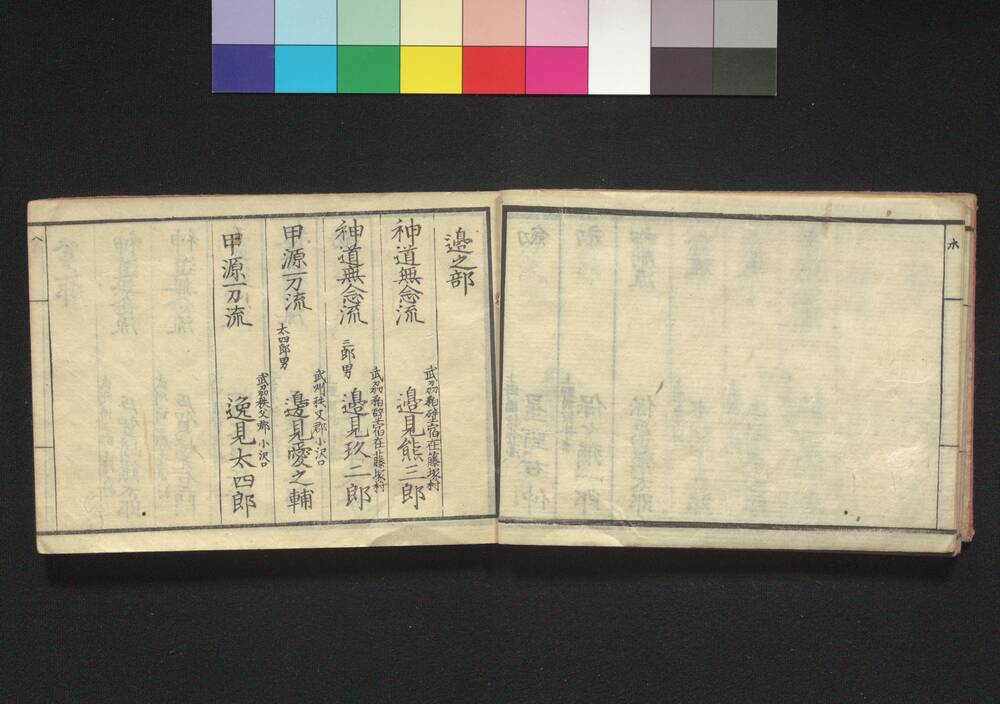 邉之部
神道無念流
武刕粕壁宿在藤塚村
邉見熊三郎
神道無念流
三郎男
武刕粕壁宿在藤塚村
邉見玖二郎
甲源一刀流
太四郎男
武州秩父郡小沢口
邉見愛之輔
甲源一刀流
武刕秩父郡小沢口
逸見太四郎